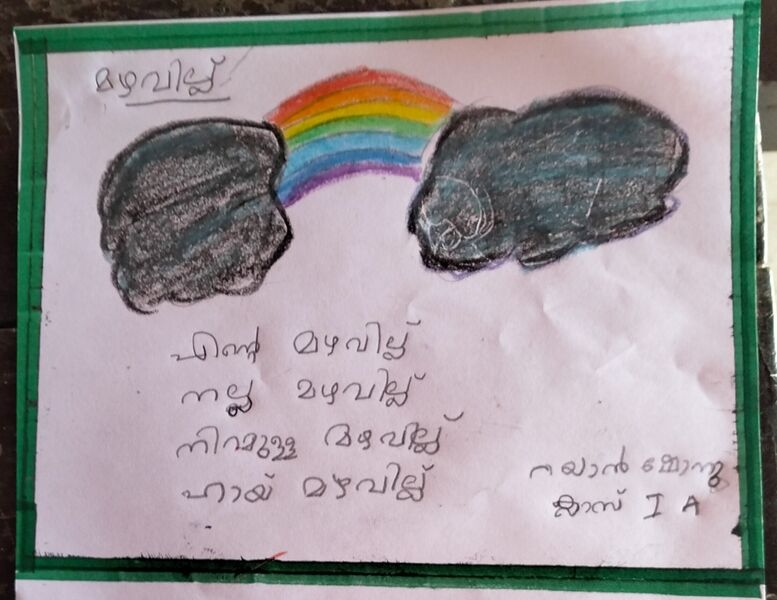 മഴവില്ല്
എന്റെ മഴവില്ല്
നല്ല മഴവില്ല്
നിറമുള്ള മഴവില്ല്
ഹായ് മഴവില്ല്
ക്ലാസ് I A